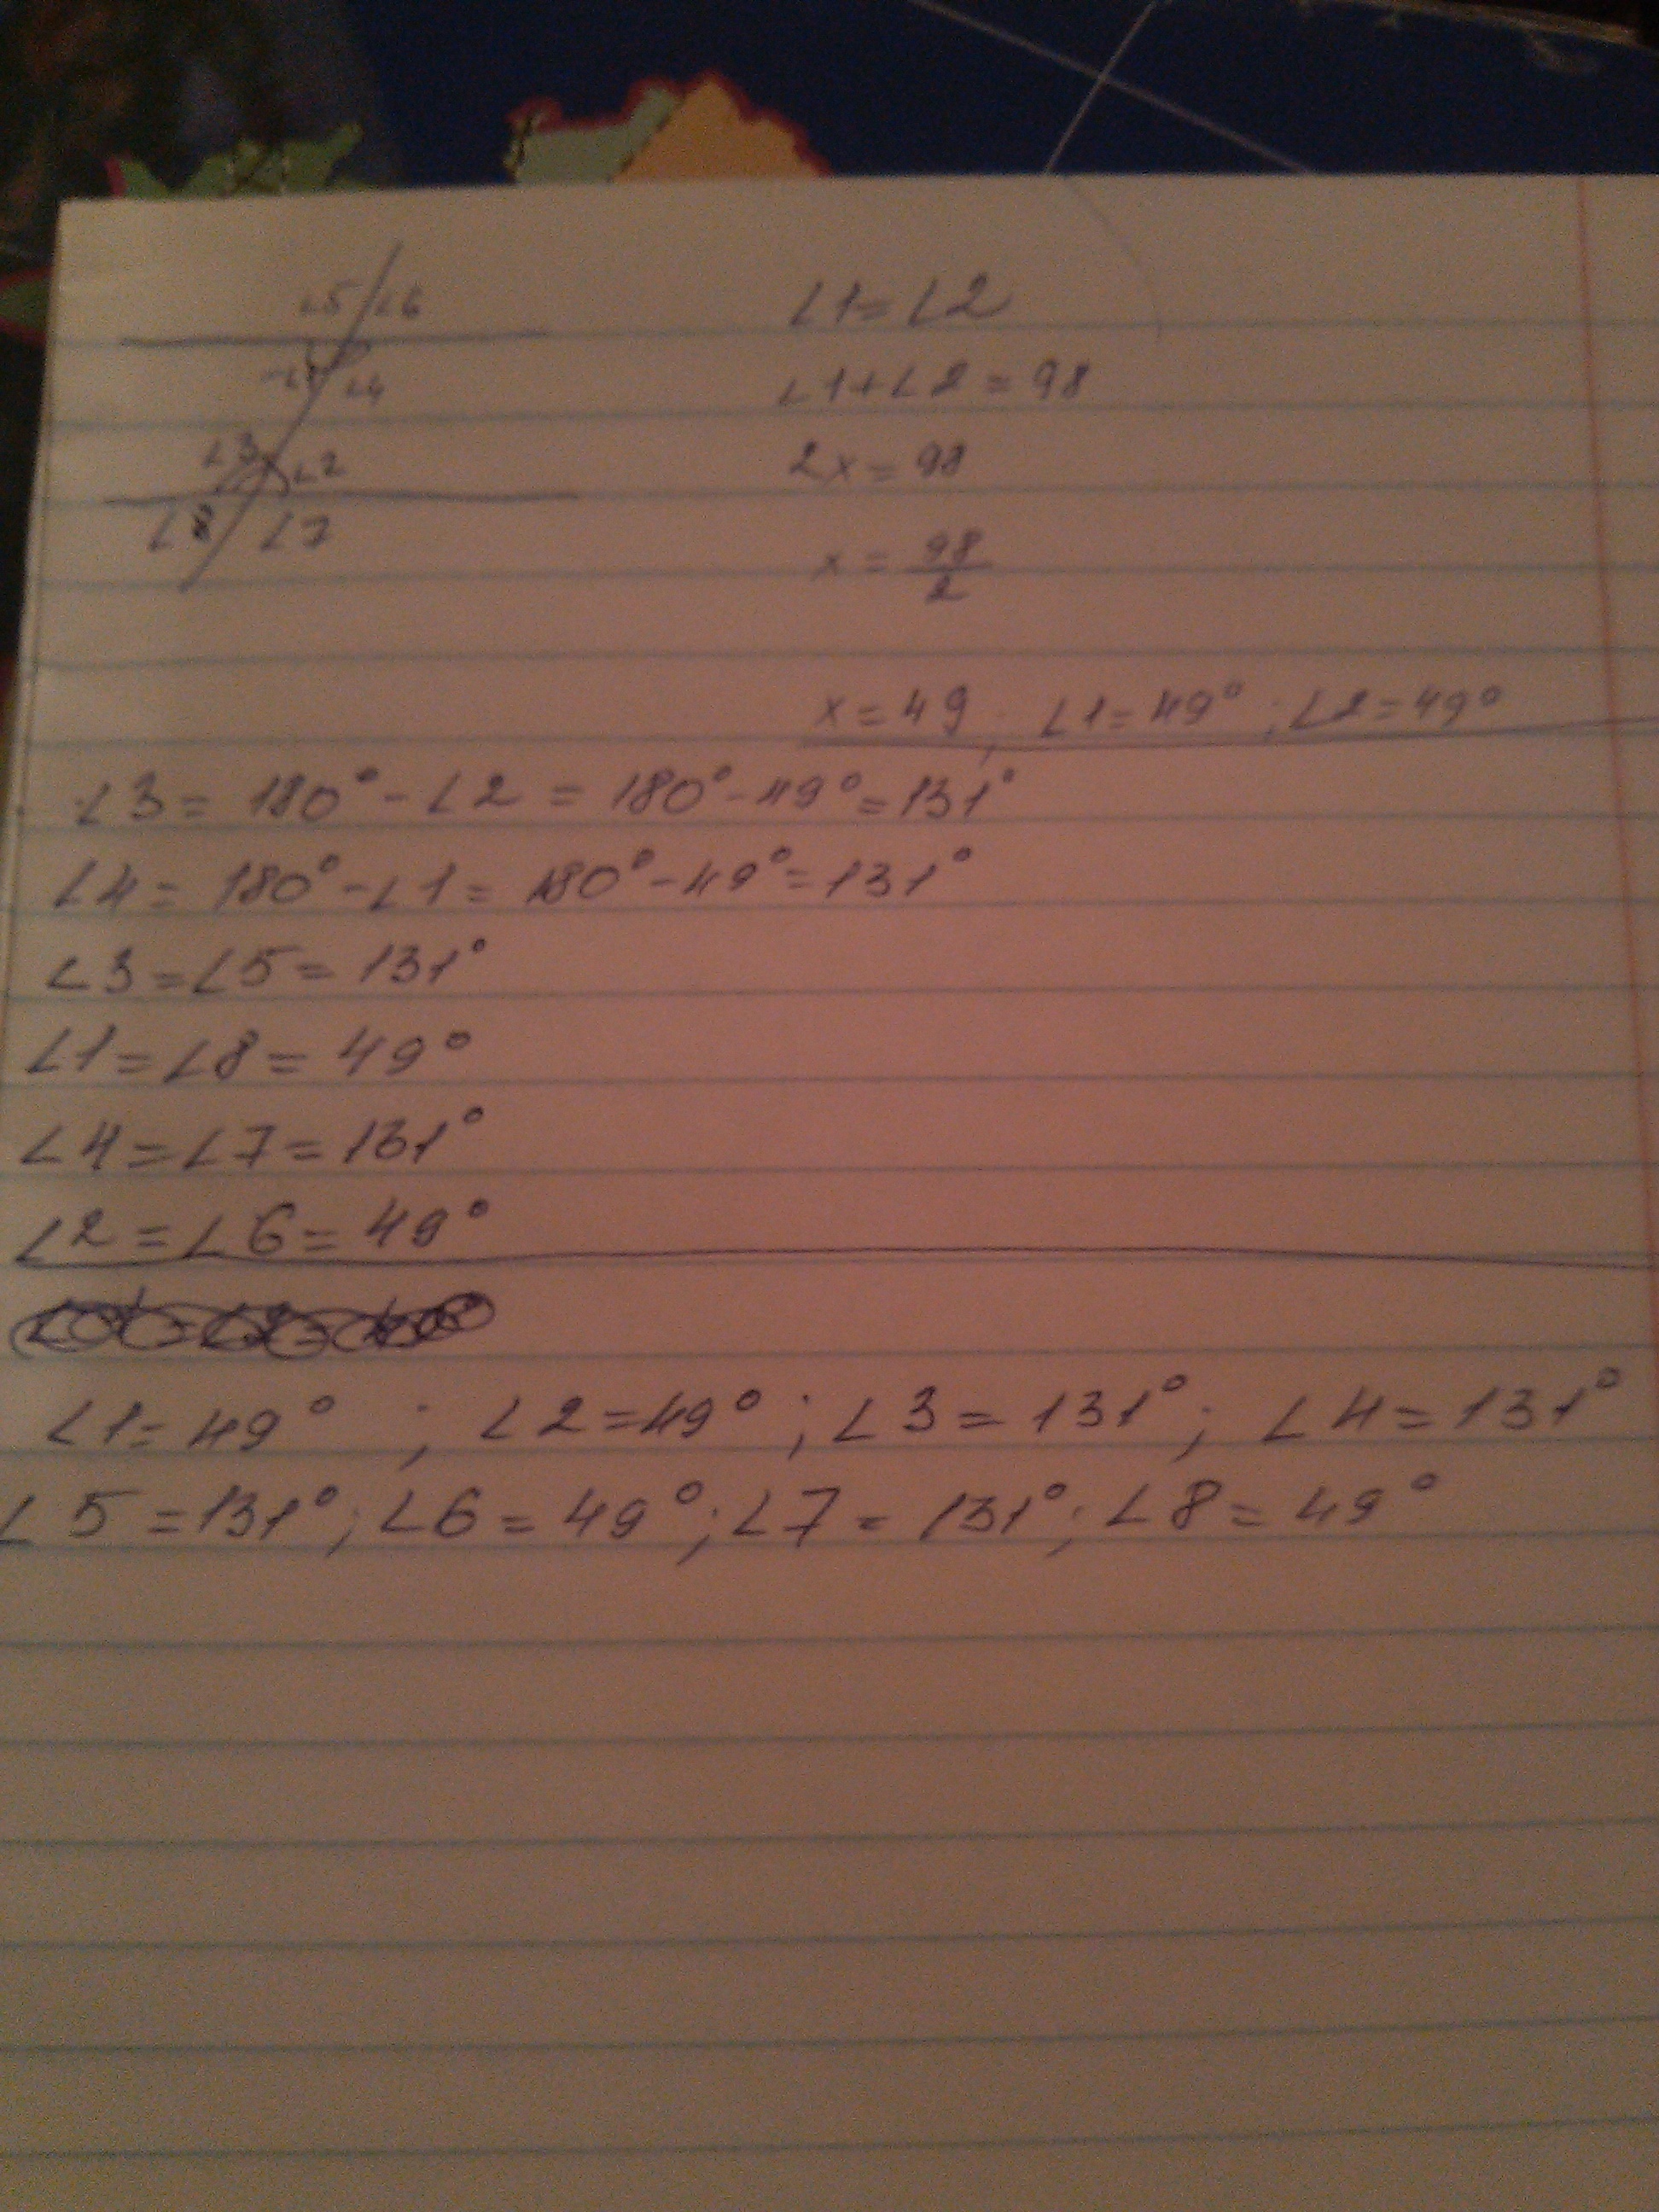 ∠5 ∠6
∠1 ∠4
∠3 ∠2
∠8 ∠7
∠1=∠2
∠1+∠2=98
2x=98
x=98/2
x=49; ∠1=49°; ∠2=49°
∠3=180°-∠2=180°-49°=131°
∠4=180°-∠1=180°-49°=131°
∠3=∠5=131°
∠1=∠8=49°
∠4=∠7=131°
∠2=∠6=49°
∠1=49°; ∠2=49°; ∠3=131°; ∠4=131°
∠5=131°; ∠6=49°; ∠7=131°; ∠8=49°